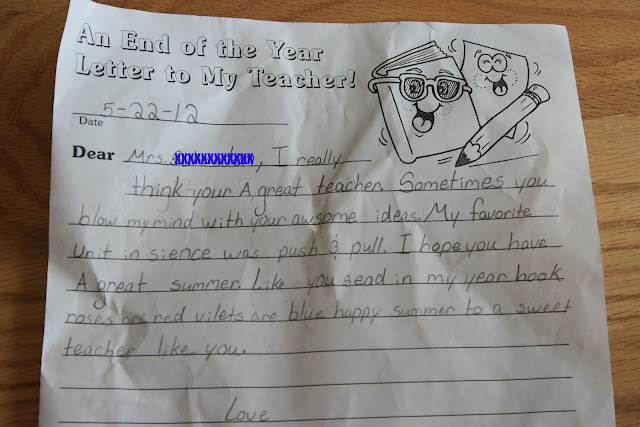 An End of the Year
Letter to My Teacher!
5-22-12
Date
Dear Mrs. XXXXXXXXXXXX, I really
thigk your A great teacher. Sometimes you
blow my mind with your awsome ideas. My favorite
unit in sience was push & pull. I hope you have
A great summer. Like you sead in my year book
roses are red vilets are blue happy summer to a sweet
teacher like you.
Love